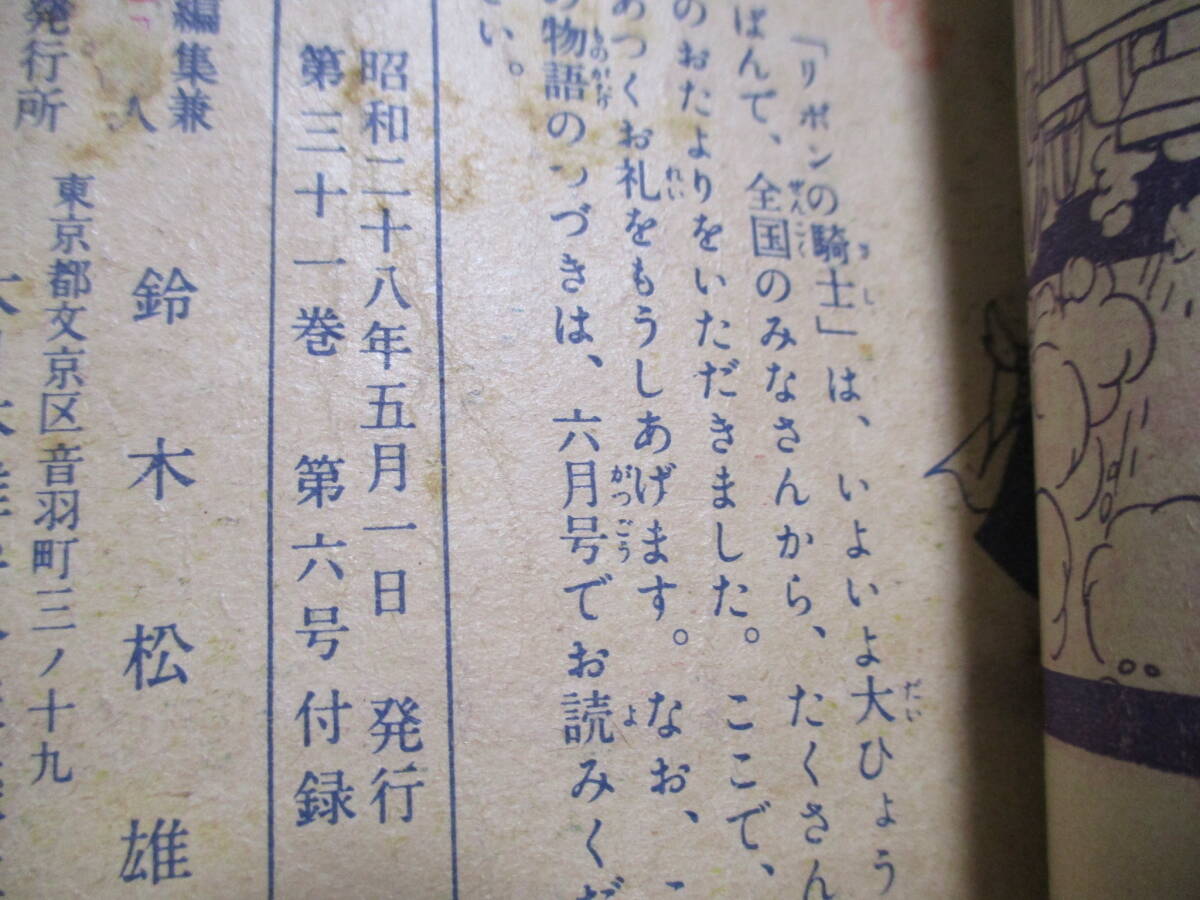 「リボンの騎士」は、いよいよ大ひょう
ばんで、全国のみなさんから、たくさん
のおたよりをいただきました。ここで、
あつくお礼をもうしあげます。なお、こ
の物語のつづきは、六月号でお読みくだ
さい。
昭和二十八年五月一日 発行
第三十一巻 第六号 付録
編集兼
人 鈴木松雄
東京都文京区音羽町三ノ十九
発行所